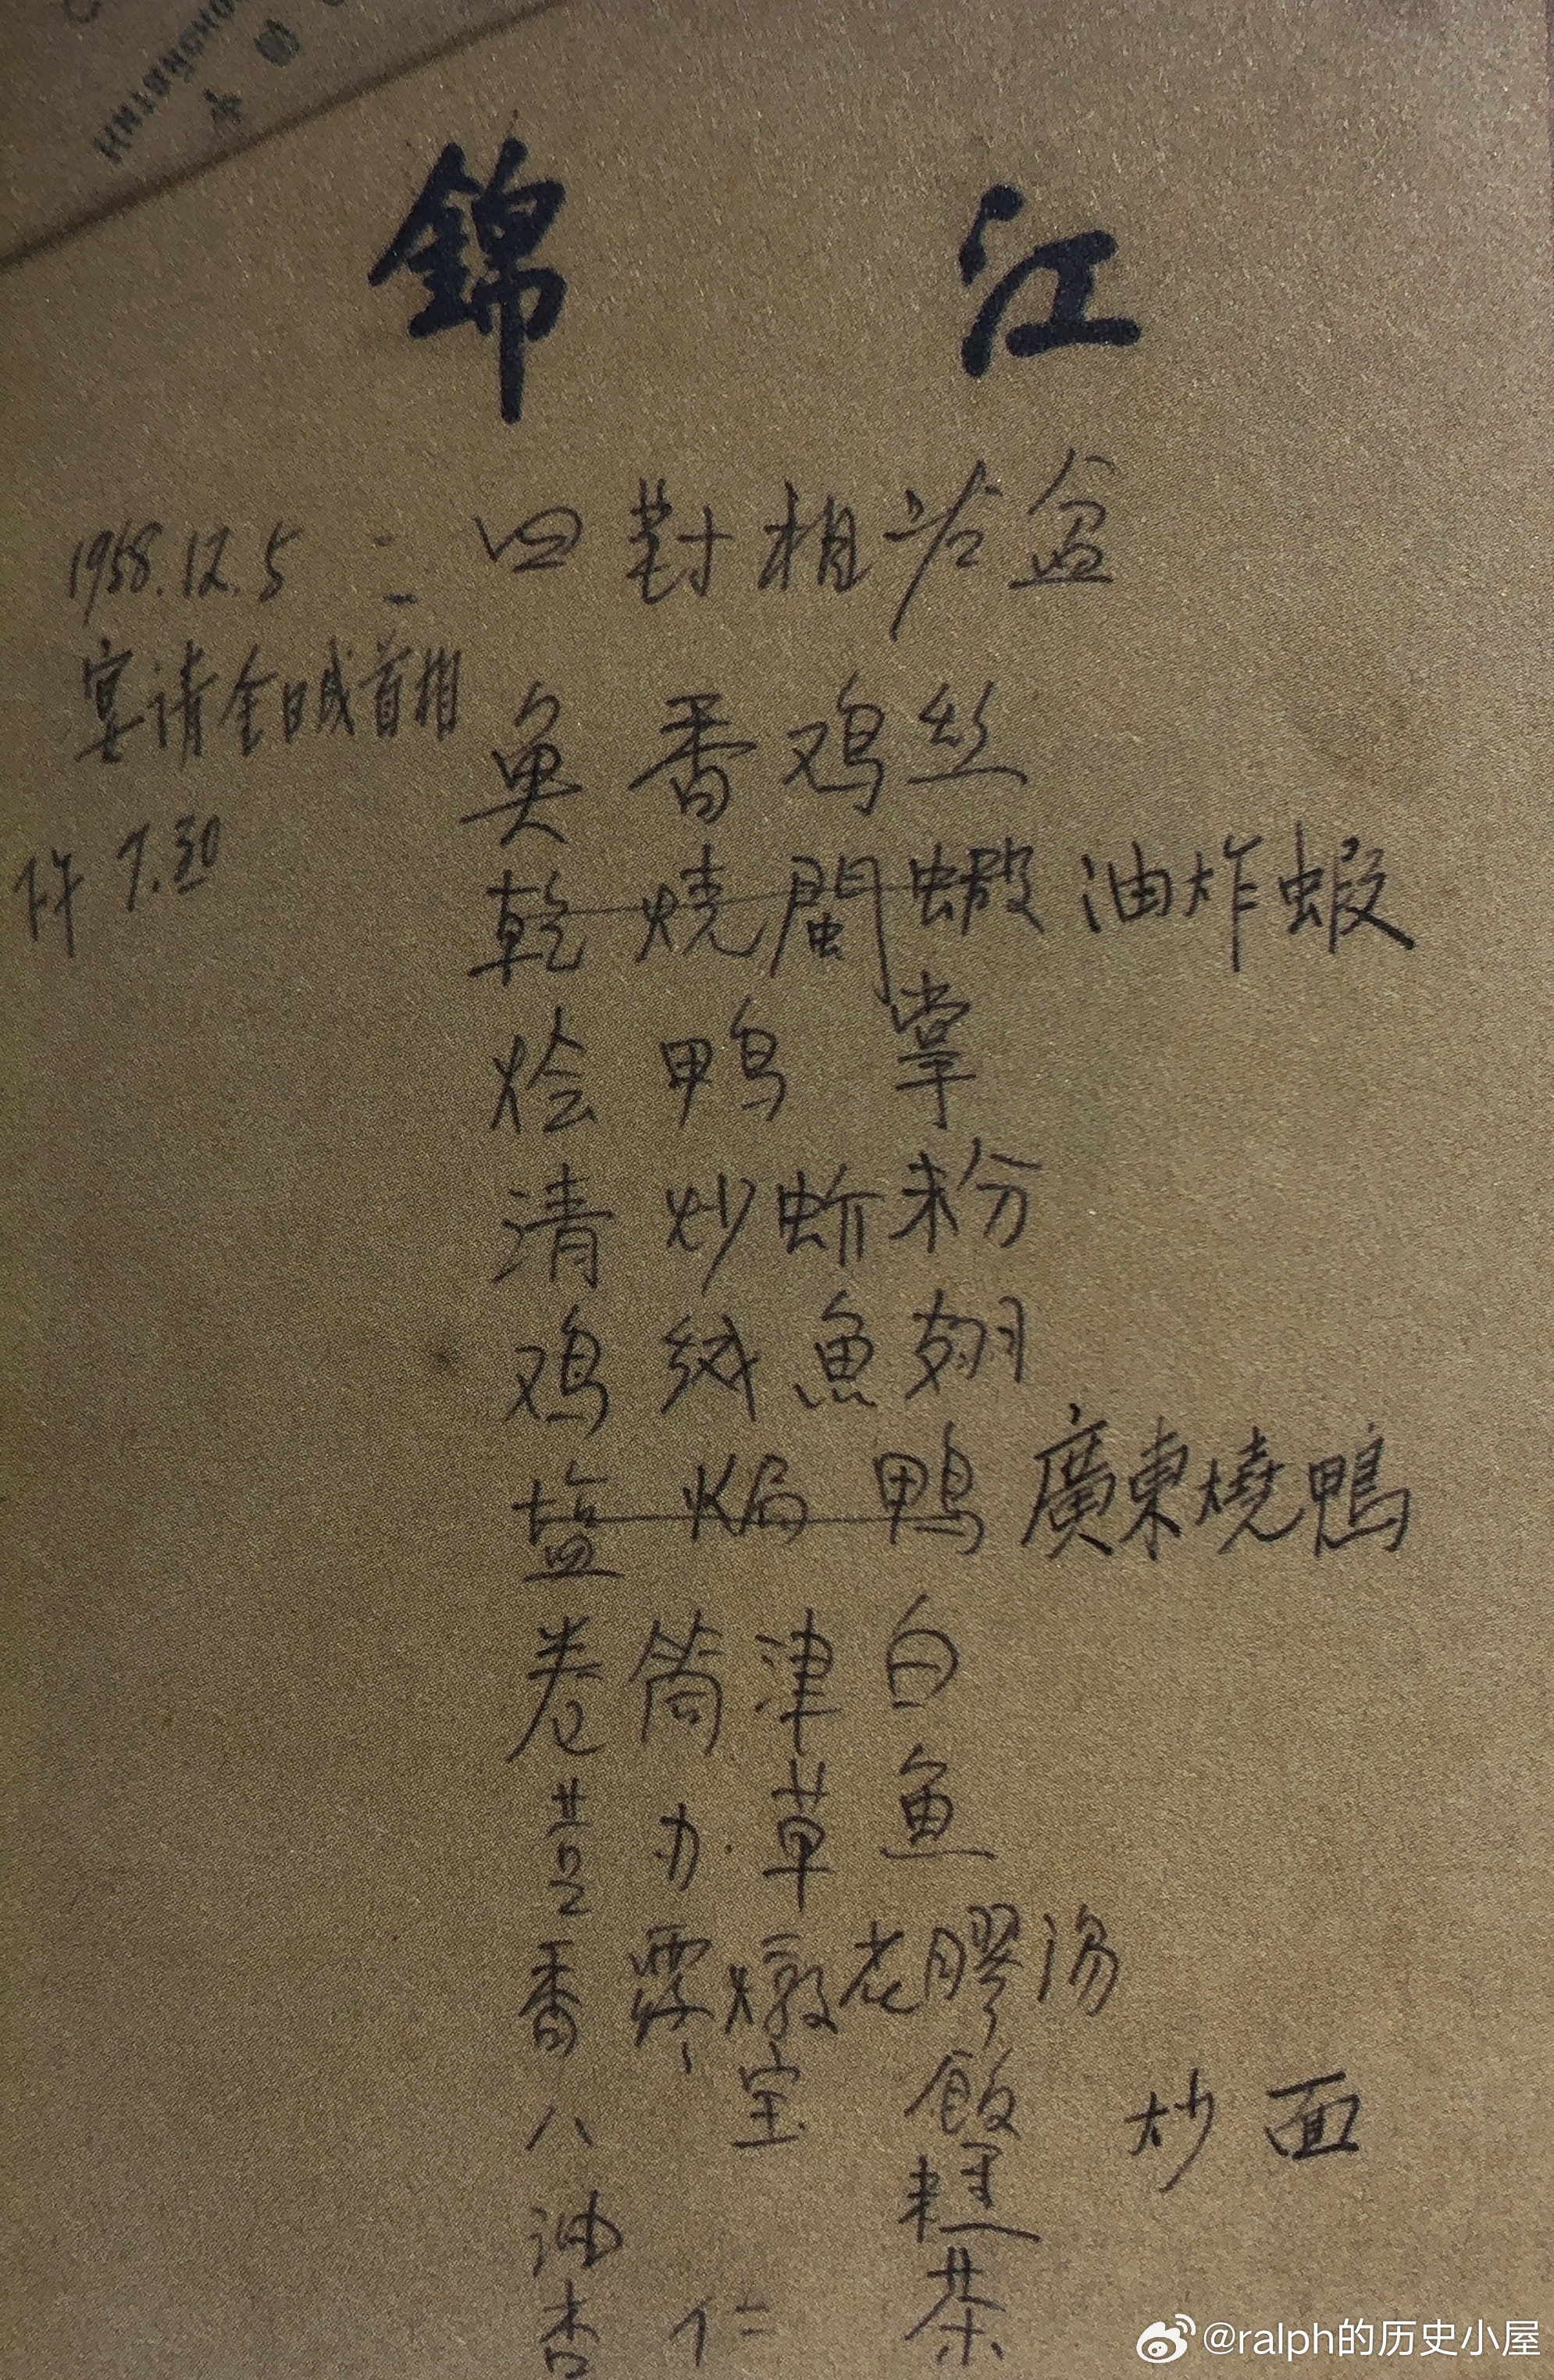 錦江
1958.12.5
宴请金日成首相
下午 7.30
四對相冷盆
魚香鸡丝
乾燒閶蝦 油炸蝦
烩鴨掌
清炒蚧粉
鸡绒魚翅
盐焗鴨 廣東燒鴨
卷筒津白
草鱼
香露燉花膠汤
八宝飯 炒面
油糕
杏仁茶
@ralph的历史小屋